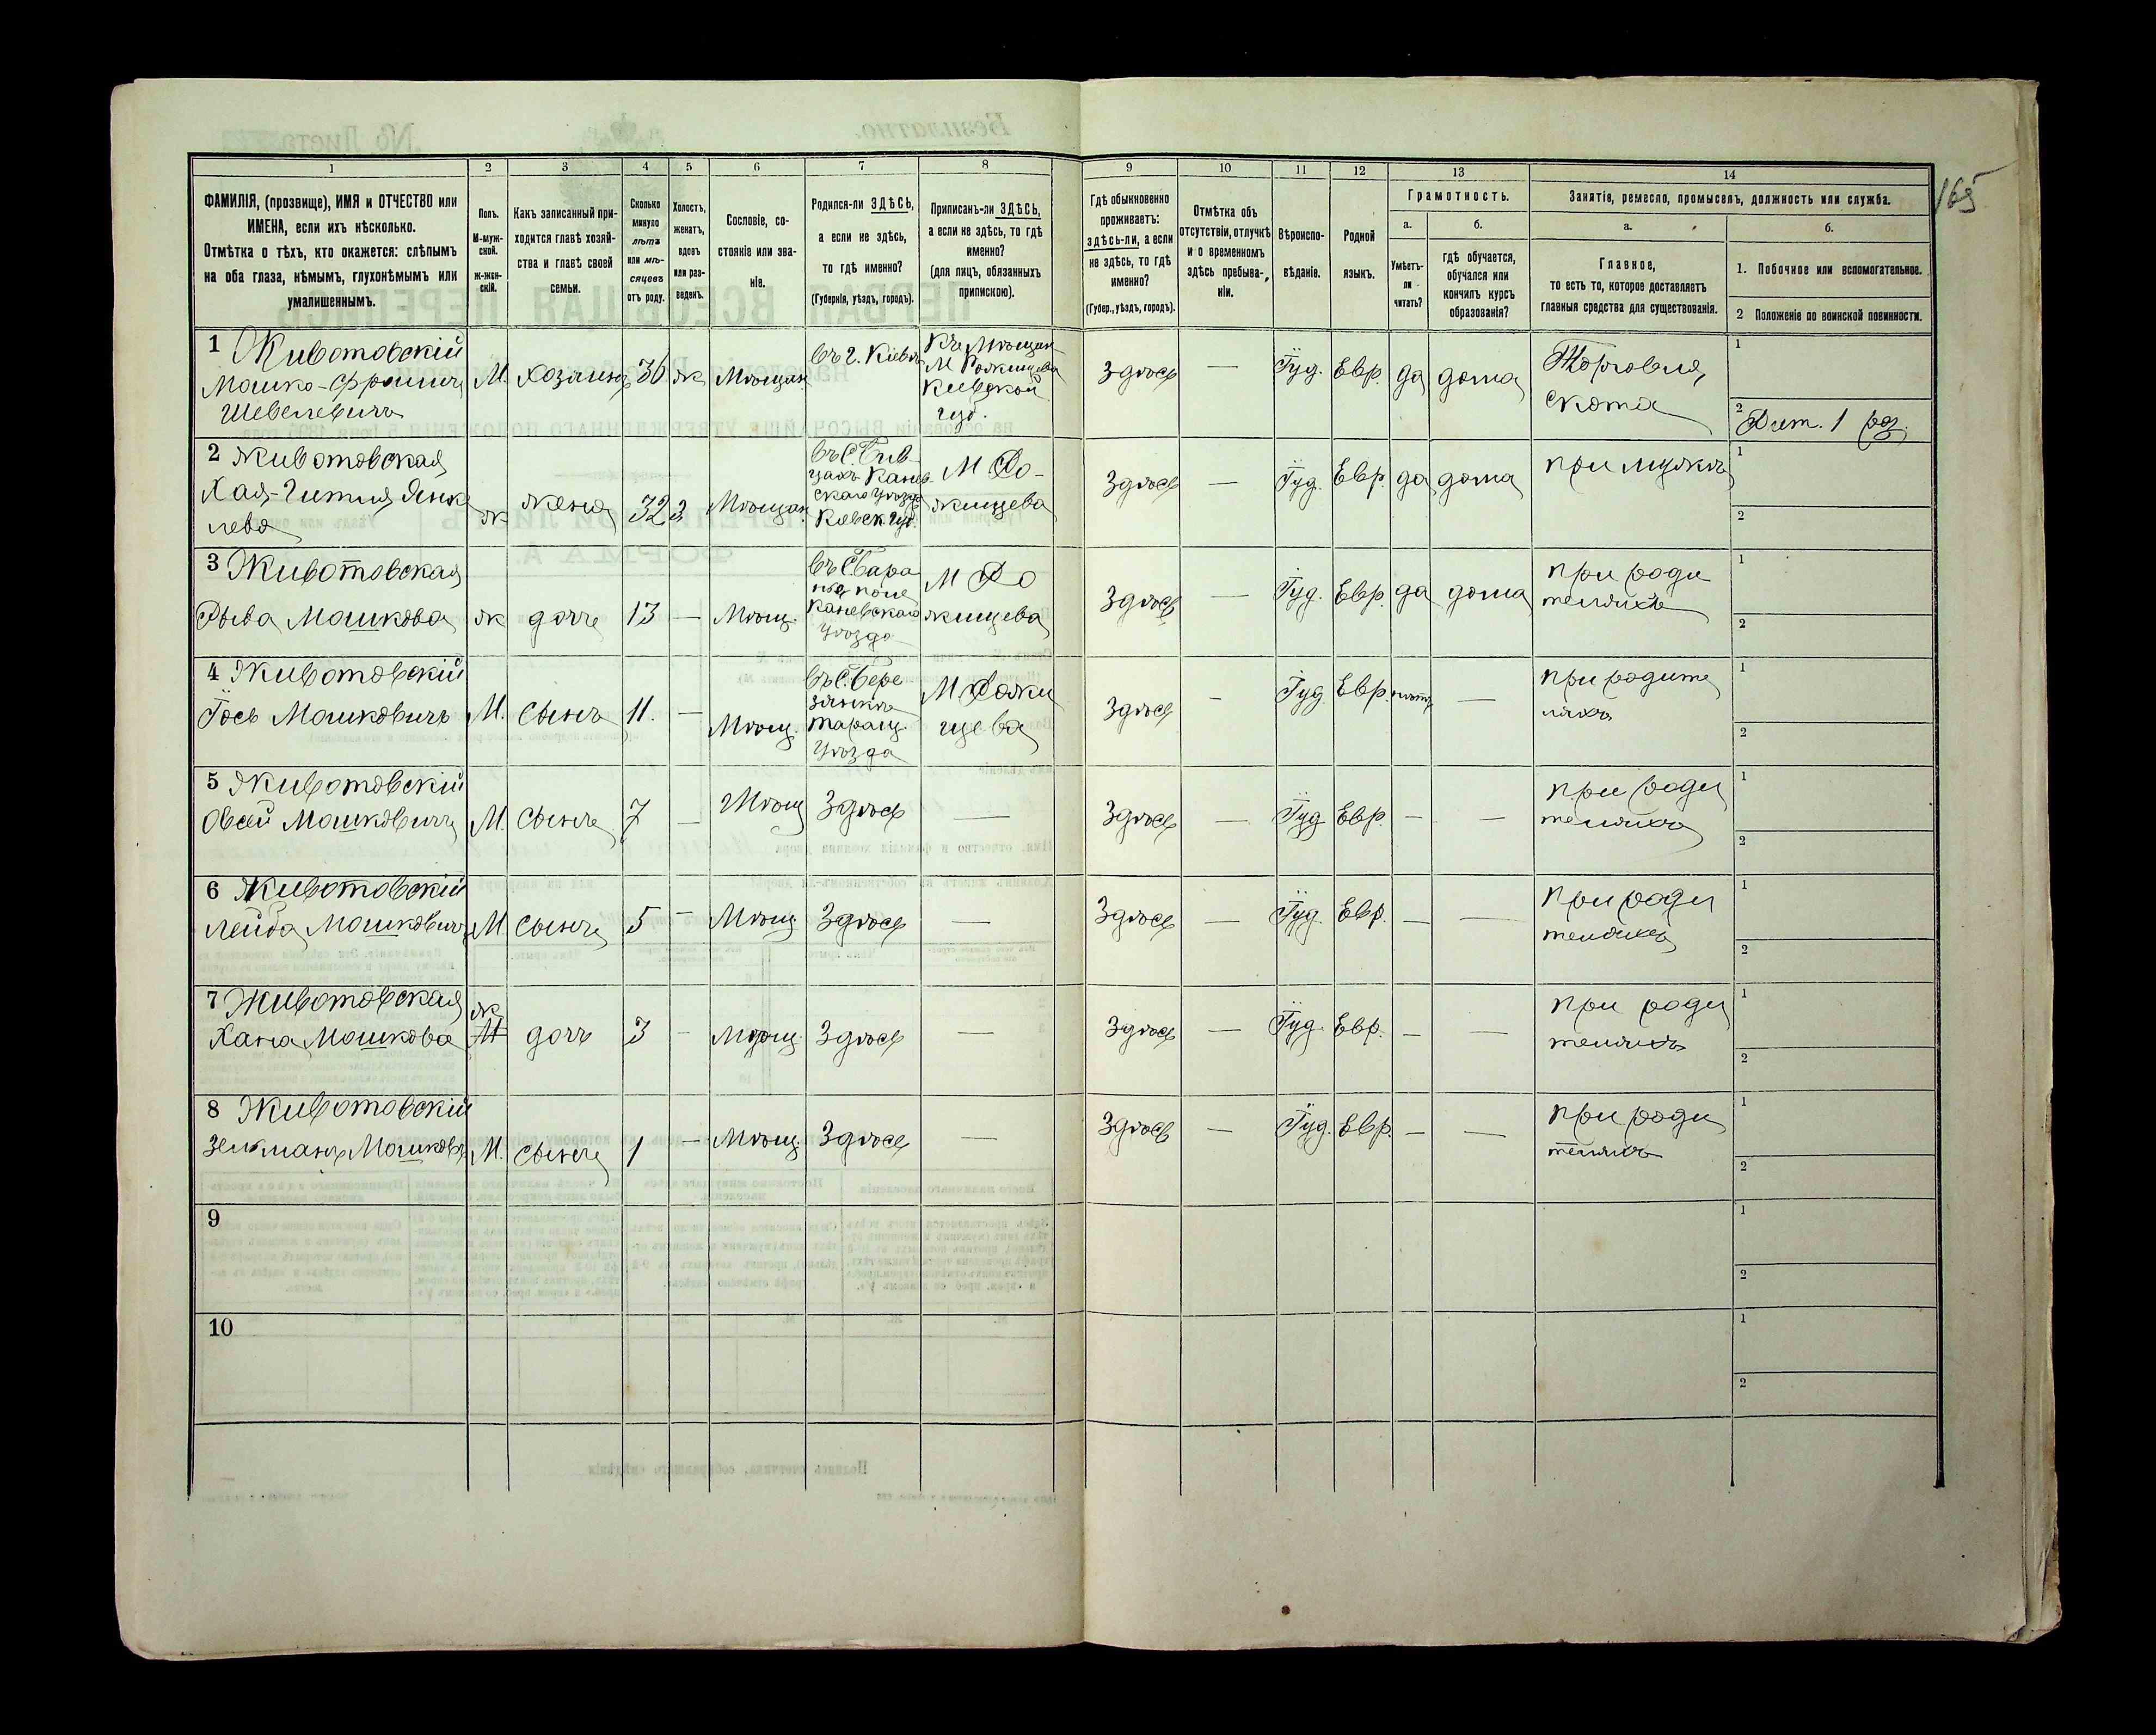 1
2
3
4
5
6
7
8
ФАМИЛІЯ, (прозвище), ИМЯ и ОТЧЕСТВО или
ИМЕНА, если ихъ нѣсколько.
Отмѣтка о тѣхъ, кто окажется: слѣпымъ
на оба глаза, нѣмымъ, глухонѣмымъ или
умалишеннымъ.
Полъ.
М-муж-
ской.
Ж-жен-
скій.
Какъ записанный при-
ходится главѣ хозяй-
ства и главѣ своей
семьи.
Сколько
минуло
лѣтъ
или мѣ-
сяцевъ
отъ роду.
Холостъ,
женатъ,
вдовъ
или раз-
веденъ.
Сословіе, со-
стояніе или зва-
ніе.
Родился-ли ЗДѢСЬ,
а если не здѣсь,
то гдѣ именно?
(Губернія, уѣздъ, городъ).
Приписанъ-ли ЗДѢСЬ,
а если не здѣсь, то гдѣ
именно?
(для лицъ, обязанныхъ
припискою).
9
10
11
12
13
14
Гдѣ обыкновенно
проживаетъ:
здѣсь-ли, а если
не здѣсь, то гдѣ
именно?
(Губер., уѣздъ, городъ).
Отмѣтка объ
отсутствіи, отлучкѣ
и о временномъ
здѣсь пребыва-
ніи.
Вѣроиспо-
вѣданіе.
Родной
языкъ.
Грамотность.
а.
Умѣетъ-
ли
читать?
б.
гдѣ обучается,
обучался или
кончилъ курсъ
образованія?
Занятіе, ремесло, промыселъ, должность или служба.
а.
Главное,
то есть то, которое доставляетъ
главныя средства для существованія.
б.
1. Побочное или вспомогательное.
2 Положеніе по воинской повинности.
165
1 Животовскій
Мошко-Фроим
Шевелевичъ
М. хозяинъ 36 ж Мѣщан.
въ г. Кіевѣ
Къ Мѣщан
М Рожищева
Кіевской
губ.
здѣсь — Іуд. Евр. да дома
Торговля
скота
1
2 Рат. 1 раз.
2 Животовская
Хая-Гитля Янке
лева
ж жена 32 з Мѣщан.
Канев-
скаго уѣзда
Кіевск. губ.
М Ро-
жищева
здѣсь — Іуд. Евр. да дома
при мужѣ
1
2
3 Животовская
Рыва Мошкова
ж дочь 13 — Мѣщ.
Каневскаго
уѣзда
М Ро
жищева
здѣсь — Іуд. Евр. да дома
при роди
теляхъ
1
2
4 Животовскій
Іось Мошковичъ
М. сынъ 11. — Мѣщ.
въ С. Бере
зянкѣ
таращ.
уѣзда
М Рожи
щева
здѣсь - Іуд Евр. —
при родите
ляхъ
1
2
5 Животовскій
Овсей Мошковичъ
М. сынъ 7 — Мѣщ здѣсь —
здѣсь — Іуд Евр. — —
при роди
теляхъ
1
2
6 Животовскій
Лейба Мошковичъ
М сынъ 5 — Мѣщ здѣсь —
здѣсь — Іуд. Евр. — —
при роди
теляхъ
1
2
7 Животовская
Хана Мошкова
ж
дочь 3 — Мѣщ. здѣсь —
здѣсь — Іуд. Евр. — —
при роди
теляхъ
1
2
8 Животовскій
Зельманъ Мошков.
М. сынъ 1 — Мѣщ. здѣсь —
здѣсь — Іуд. Евр. — —
при роди
теляхъ
1
2
9
1
2
10
1
2